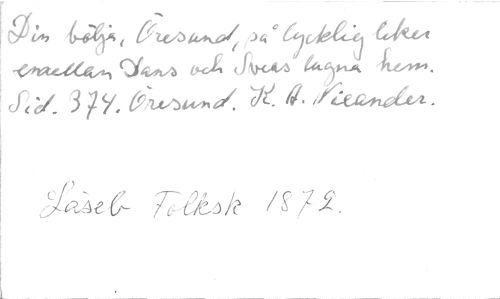 Din bölja, Öresund, på lycklig leker
emellan Dans och Sveas lugna hem.
Sid. 374. Öresund. K. A. Nicander.
Läseb Folksk 1872.